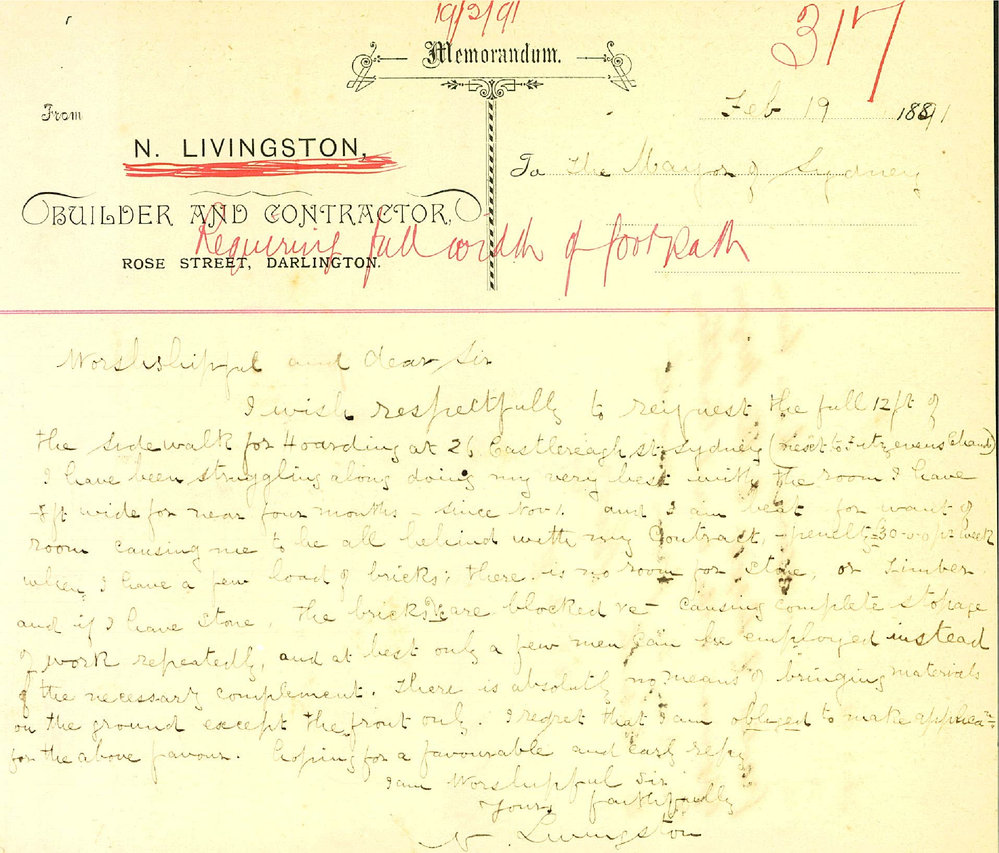 19/2/91
317
Memorandum.
Feb 19 1891
From
N. LIVINGSTON,
To The Mayor of Sydney
BUILDER AND CONTRACTOR,
Requiring full width of footpath
ROSE STREET, DARLINGTON.
Worshshipful and dear Sir
I wish respectfully to reiquest the full 12ft of
the sidewalk for Hoarding at 26 Castlereagh st Sydney (next to
I have been struggling along doing my very best with the room I have
8ft wide for near four months - since Nov 1. and I am beat for want of
room causing me to be all behind with my Contract, - penalty £30-0-0 pr week
when I have a few load of bricks; there is no room for stone, or Timber
and if I have stone the bricks &c are blocked &c - causing complete stopage
of work repeatedly, and at best only a few men can be employed instead
of the necessary complement. There is absolutly no means of bringing materials
on the ground except the front only. I regret that I am obliged to make applicatn
for the above favour. hoping for a favourable and early reply
I am Worshipful Sir
Yours faithfully
N Livingston